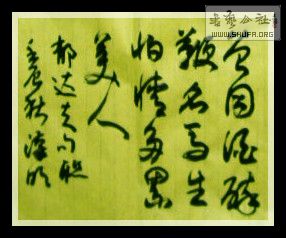 书艺公社
WWW.SHUFA.ORG
曾因酒醉
鞭名马生
怕情多累
美人
郁达夫句
秋